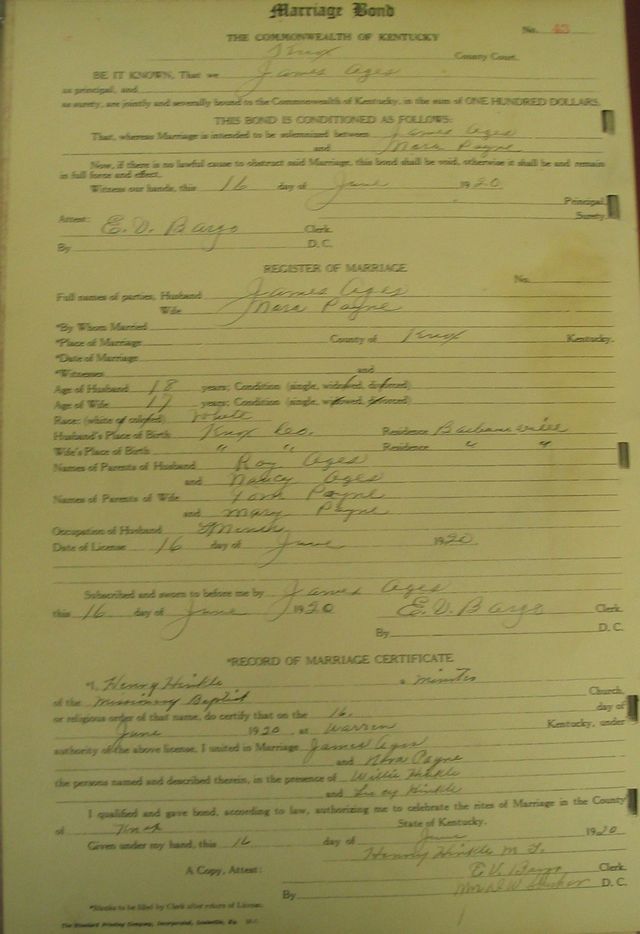 Marriage Bond
No. 43
THE COMMONWEALTH OF KENTUCKY
Knox County Court.
BE IT KNOWN, That we James Ages
as principal, and
as surety, are jointly and severally bound to the Commonwealth of Kentucky, in the sum of ONE HUNDRED DOLLARS.
THIS BOND IS CONDITIONED AS FOLLOWS:
That, whereas Marriage is intended to be solemnized between James Ages
and Nora Payne
Now, if there is no lawful cause to obstruct said Marriage, this bond shall be void, otherwise it shall be and remain
in full force and effect.
Witness our hands, this 16 day of June 1920
Principal
Surety.
Attest: E. D. Bargo Clerk.
By D. C.
REGISTER OF MARRIAGE
No.
Full names of parties, Husband James Ages
Wife Nora Payne
*By Whom Married
*Place of Marriage County of Knox Kentucky.
*Date of Marriage
*Witnesses and
Age of Husband 18 years; Condition (single, widowed, divorced)
Age of Wife 17 years; Condition (single, widowed, divorced)
Race: (white or colored) White
Husband's Place of Birth Knox Co. Residence Barbourville
Wife's Place of Birth " " Residence " "
Names of Parents of Husband Roy Ages
and Nancy Ages
Names of Parents of Wife Tom Payne
and Mary Payne
Occupation of Husband
Date of License 16 day of June 1920
Subscribed and sworn to before me by James Ages
this 16 day of June 1920 E. D. Bargo Clerk.
By D. C.
*RECORD OF MARRIAGE CERTIFICATE
*I, Henry Hinkle a minister
of the Missionary Baptist Church,
or religious order of that name, do certify that on the 16 day of
June 1920, at Warren Kentucky, under
authority of the above license, I united in Marriage James Ages
and Nora Payne
the persons named and described therein, in the presence of Willie Hinkle
and Lucy Hinkle
I qualified and gave bond, according to law, authorizing me to celebrate the rites of Marriage in the County
of Knox State of Kentucky.
Given under my hand, this 16 day of June 1920
Henry Hinkle M. G.
A Copy, Attest: E. D. Bargo Clerk.
By D. C.
*Blanks to be filled by Clerk after return of License.
The Standard Printing Company, Incorporated, Louisville, Ky.